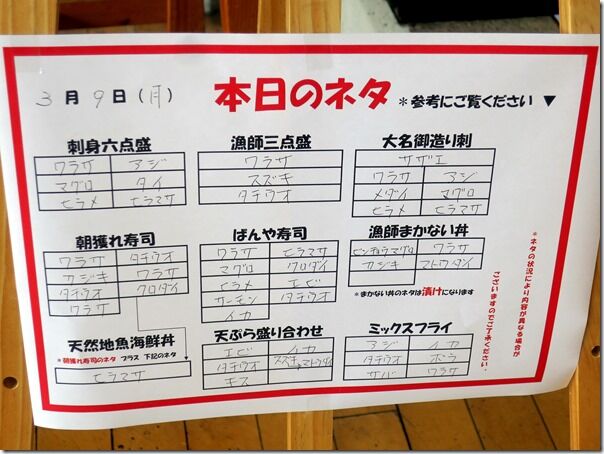 3月9日(月) 本日のネタ *参考にご覧ください▼
刺身六点盛
ワラサ アジ
マグロ タイ
ヒラメ ヒラマサ
漁師三点盛
ワラサ
スズキ
タチウオ
大名御造り刺
サザエ
ワラサ アジ
メダイ マグロ
ヒラメ ヒラマサ
朝獲れ寿司
ワラサ タチウオ
カジキ ワラサ
タチウオ クロダイ
ワラサ
ばんや寿司
ワラサ ヒラマサ
マグロ クロダイ
ヒラメ エビ
サーモン タチウオ
イカ
漁師まかない丼
ビンチョウマグロ ワラサ
カジキ マトウダイ
*まかない丼のネタは漬けになります
天然地魚海鮮丼
*朝獲れ寿司のネタ プラス 下記のネタ
ヒラマサ
天ぷら盛り合わせ
エビ イカ
タチウオ スズキ マトウダイ
キス
ミックスフライ
アジ イカ
タチウオ ボラ
サバ ワラサ
*ネタの状況により内容が異なる場合が
ございますのでご了承ください。